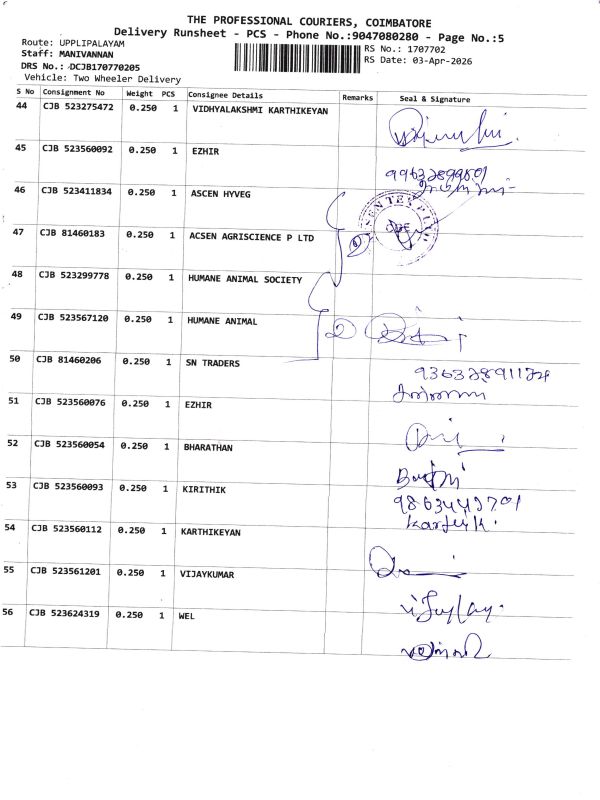 THE PROFESSIONAL COURIERS, COIMBATORE
Delivery Runsheet - PCS - Phone No.:9047080280 - Page No.:5
Route: UPPLIPALAYAM
RS No.: 1707702
Staff: MANIVANNAN
RS Date: 03-Apr-2026
DRS No.: DCJB170770205
Vehicle: Two Wheeler Delivery
S No Consignment No Weight PCS Consignee Details Remarks Seal & Signature
44 CJB 523275472 0.250 1 VIDHYALAKSHMI KARTHIKEYAN
45 CJB 523560092 0.250 1 EZHIR
46 CJB 523411834 0.250 1 ASCEN HYVEG
47 CJB 81460183 0.250 1 ACSEN AGRISCIENCE P LTD
48 CJB 523299778 0.250 1 HUMANE ANIMAL SOCIETY
49 CJB 523567120 0.250 1 HUMANE ANIMAL
2
50 CJB 81460206 0.250 1 SN TRADERS
51 CJB 523560076 0.250 1 EZHIR
52 CJB 523560054 0.250 1 BHARATHAN
53 CJB 523560093 0.250 1 KIRITHIK
9863443701
Karthik.
54 CJB 523560112 0.250 1 KARTHIKEYAN
55 CJB 523561201 0.250 1 VIJAYKUMAR
56 CJB 523624319 0.250 1 WEL